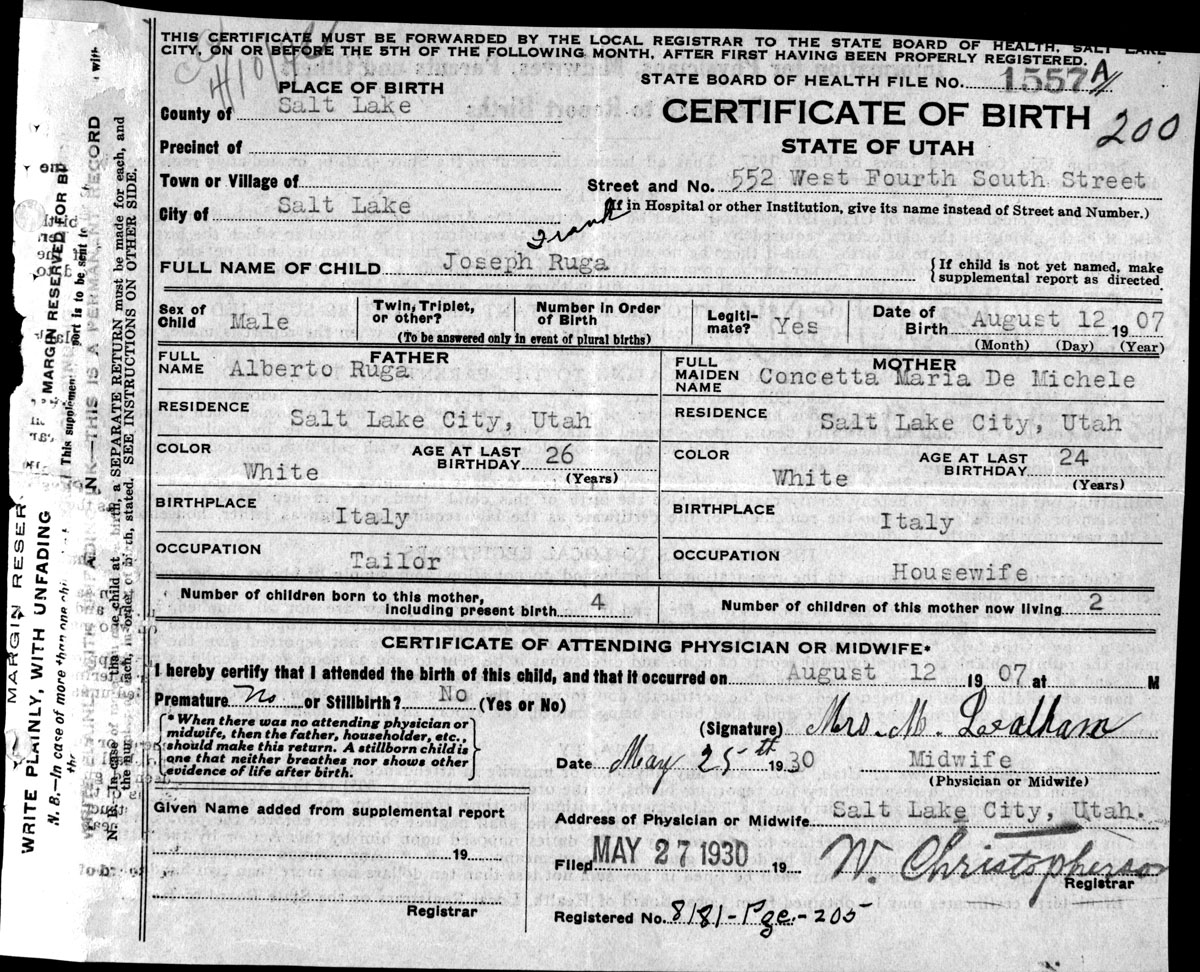 THIS CERTIFICATE MUST BE FORWARDED BY THE LOCAL REGISTRAR TO THE STATE BOARD OF HEALTH, SALT LAKE
CITY, ON OR BEFORE THE 5TH OF THE FOLLOWING MONTH, AFTER FIRST HAVING BEEN PROPERLY REGISTERED.
STATE BOARD OF HEALTH FILE NO. 1557 A
PLACE OF BIRTH
County of Salt Lake
CERTIFICATE OF BIRTH 200
Precinct of
STATE OF UTAH
Town or Village of
Street and No. 552 West Fourth South Street
City of Salt Lake
(If in Hospital or other Institution, give its name instead of Street and Number.)
Frank
FULL NAME OF CHILD Joseph Ruga
{If child is not yet named, make
supplemental report as directed
Sex of Child Male
Twin, Triplet, or other?
Number in Order of Birth
(To be answered only in event of plural births)
Legiti-mate? Yes
Date of Birth August 12 1907
(Month) (Day) (Year)
FATHER
FULL NAME Alberto Ruga
MOTHER
FULL MAIDEN NAME Concetta Maria De Michele
RESIDENCE Salt Lake City, Utah
RESIDENCE Salt Lake City, Utah
COLOR White
AGE AT LAST BIRTHDAY 26 (Years)
COLOR White
AGE AT LAST BIRTHDAY 24 (Years)
BIRTHPLACE Italy
BIRTHPLACE Italy
OCCUPATION Tailor
OCCUPATION Housewife
Number of children born to this mother, including present birth 4
Number of children of this mother now living 2
CERTIFICATE OF ATTENDING PHYSICIAN OR MIDWIFE*
I hereby certify that I attended the birth of this child, and that it occurred on August 12 1907 at M
Premature No or Stillbirth? No (Yes or No)
*When there was no attending physician or
midwife, then the father, householder, etc.,
should make this return. A stillborn child is
one that neither breathes nor shows other
evidence of life after birth.
(Signature) Mrs. M.
Date May 25th 1930
Midwife
(Physician or Midwife)
Given Name added from supplemental report
19
Registrar
Address of Physician or Midwife Salt Lake City, Utah.
Filed MAY 27 1930 19
W. Christopherson
Registrar
Registered No. 8181-Pge-205
MARGIN RESER
WRITE PLAINLY, WITH UNFADING
N. B.—In case of more than one chi
MARGIN RESERVED FOR BI
This supplemen
port is to be sent
INK—THIS IS A PERMANENT RECORD
birth, a SEPARATE RETURN must be made for each, and
stated. SEE INSTRUCTIONS ON OTHER SIDE.